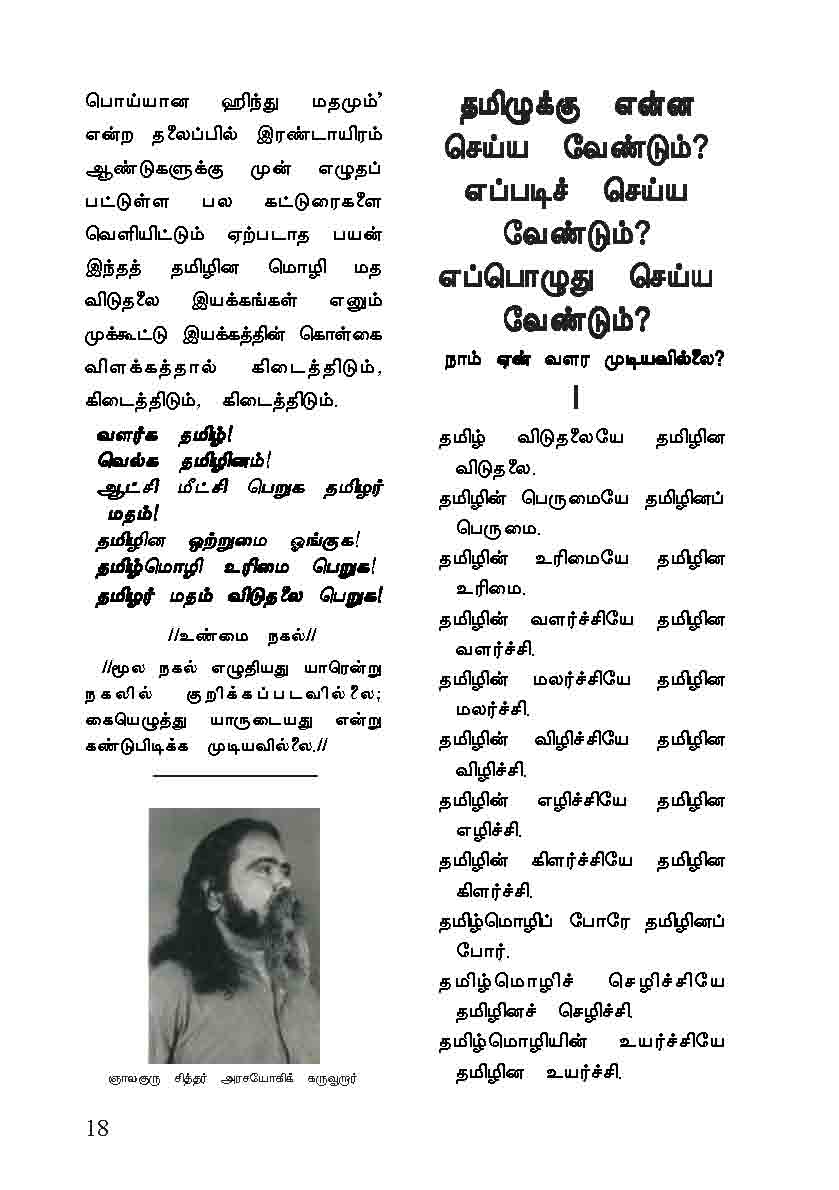 பொய்யான ஹிந்து மதமும்’
என்ற தலைப்பில் இரண்டாயிரம்
ஆண்டுகளுக்கு முன் எழுதப்
பட்டுள்ள பல கட்டுரைகளை
வெளியிட்டும் ஏற்படாத பயன்
இந்தத் தமிழின மொழி மத
விடுதலை இயக்கங்கள் எனும்
முக்கூட்டு இயக்கத்தின் கொள்கை
விளக்கத்தால் கிடைத்திடும்,
கிடைத்திடும், கிடைத்திடும்.
வளர்க தமிழ்!
வெல்க தமிழினம்!
ஆட்சி மீட்சி பெறுக தமிழர்
மதம்!
தமிழின ஒற்றுமை ஓங்குக!
தமிழ்மொழி உரிமை பெறுக!
தமிழர் மதம் விடுதலை பெறுக!
//உண்மை நகல்//
//மூல நகல் எழுதியது யாரென்று
நகலில் குறிக்கப்படவில்லை;
கையெழுத்து யாருடையது என்று
கண்டுபிடிக்க முடியவில்லை.//
ஞாலகுரு சித்தர் அரசயோகிக் கருவூறார்
18
தமிழுக்கு என்ன
செய்ய வேண்டும்?
எப்படிச் செய்ய
வேண்டும்?
எப்பொழுது செய்ய
வேண்டும்?
நாம் ஏன் வளர முடியவில்லை?
I
தமிழ் விடுதலையே தமிழின
விடுதலை.
தமிழின் பெருமையே தமிழினப்
பெருமை.
தமிழின் உரிமையே தமிழின
உரிமை.
தமிழின் வளர்ச்சியே தமிழின
வளர்ச்சி.
தமிழின் மலர்ச்சியே தமிழின
மலர்ச்சி.
தமிழின் விழிச்சியே தமிழின
விழிச்சி.
தமிழின் எழிச்சியே தமிழின
எழிச்சி.
தமிழின் கிளர்ச்சியே தமிழின
கிளர்ச்சி.
தமிழ்மொழிப் போரே தமிழினப்
போர்.
தமிழ்மொழிச் செழிச்சியே
தமிழினச் செழிச்சி.
தமிழ்மொழியின் உயர்ச்சியே
தமிழின உயர்ச்சி.